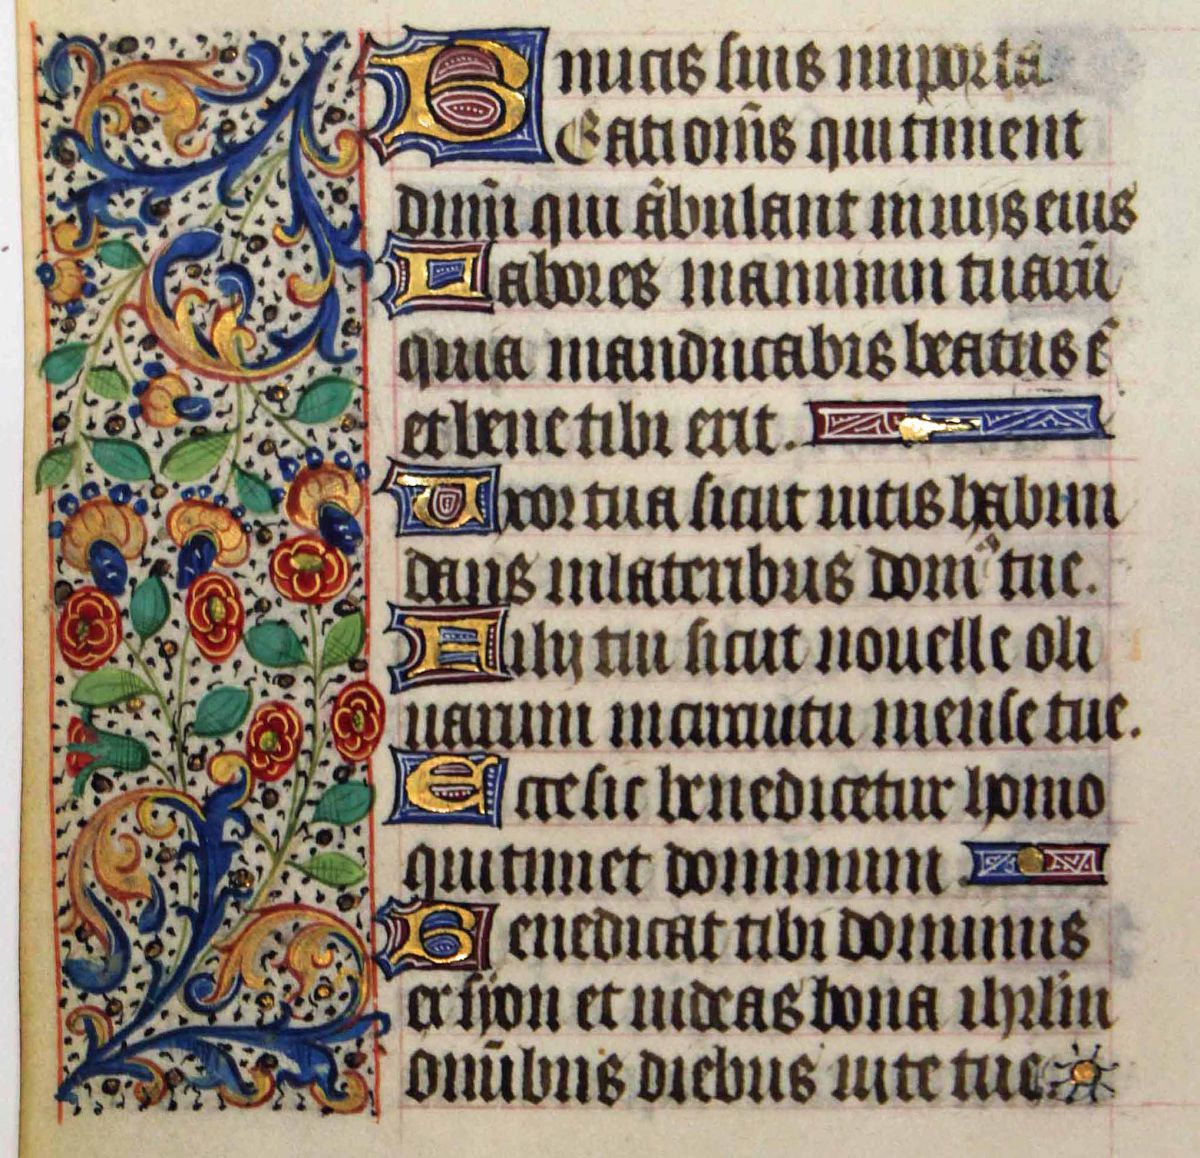 nimicis suis in porta
Beati om̄s qui timent
dnm̄ qui ābulant in uijs eius
Labores manuum tuarū
quia manducabis beatus ē
et bene tibi erit.
Uxor tua sicut uitis habun
dans in lateribus dom⁹ tue.
Filij tui sicut nouelle oli
uarum in circuitu mense tue.
Ecce sic benedicetur homo
qui timet dominum
Benedicat tibi dominus
ex syon et uideas bona ihrlm̄
omībus diebus uite tue.